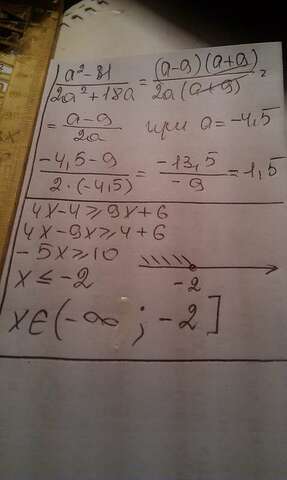 a² - 81 / 2a² + 18a = (a-9)(a+9) / 2a(a+9) =
= a-9 / 2a при a = -4,5
-4,5-9 / 2·(-4,5) = -13,5 / -9 = 1,5
4x-4 ≥ 9x+6
4x-9x ≥ 4+6
-5x ≥ 10
x ≤ -2
-2
x ∈ (-∞ ; -2]